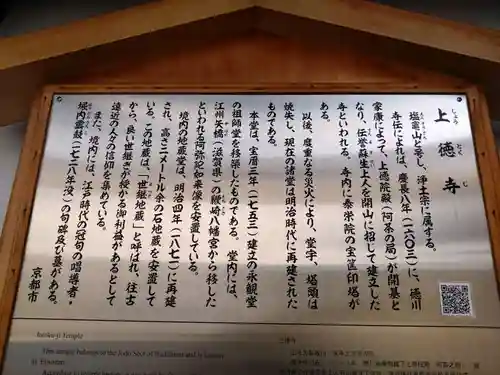 上徳寺
じょう とく じ
塩竈山と号し、浄土宗に属する。
寺伝によれば、慶長八年(一六〇三)に、徳川
家康によって、上徳院殿(阿茶の局)が開基と
なり、伝誉蘇生上人を開山に招じて建立した
寺といわれる。寺内に泰栄院の宝篋印塔が
ある。
以後、度重なる災火により、堂宇、塔頭は
焼失し、現在の諸堂は明治時代に再建された
ものである。
本堂は、宝暦三年(一七五三)建立の永観堂
の祖師堂を移築したものである。堂内には、
江州矢橋(滋賀県)の鞭崎八幡宮から移した
といわれる阿弥如来像を安置している。
境内の地蔵堂は、明治四年(一八七一)に再建
され、高さ二メートル余の石地蔵を安置して
いる。この地蔵は、「世継地蔵」と呼ばれ、往古
から、良い世継ぎが授かる御利益があるとして
遠近の人々の信仰を集めている。
また、境内には、江戸時代の冠句の唱導者・
堀内雲鼓(一七二八年没)の句碑及び墓がある。
京都市
Jōtoku-ji Temple
This temple belongs to the Jodo Sect of Buddhism and is